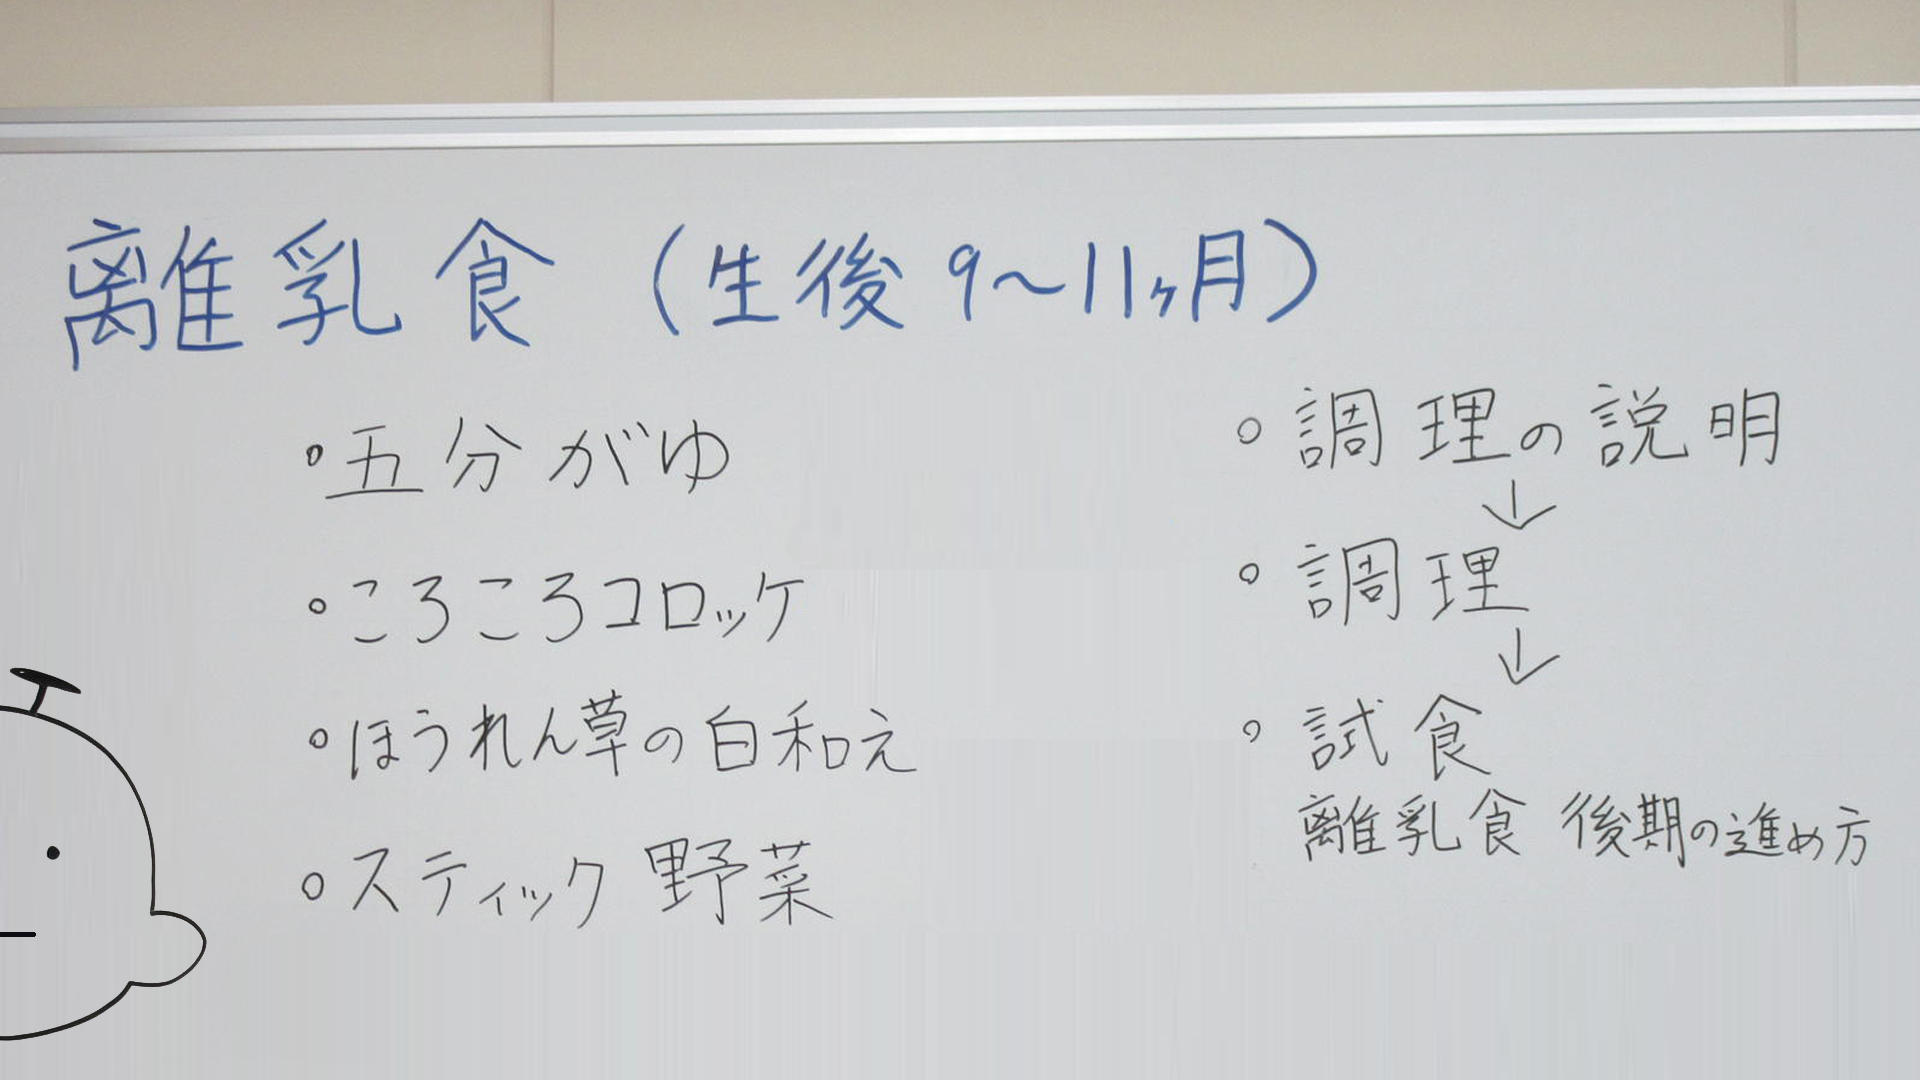 離乳食（生後9～11ヶ月）
◦五分がゆ
◦ころころコロッケ
◦ほうれん草の白和え
◦スティック野菜
◦調理の説明
↓
◦調理
↓
◦試食
離乳食 後期の進め方